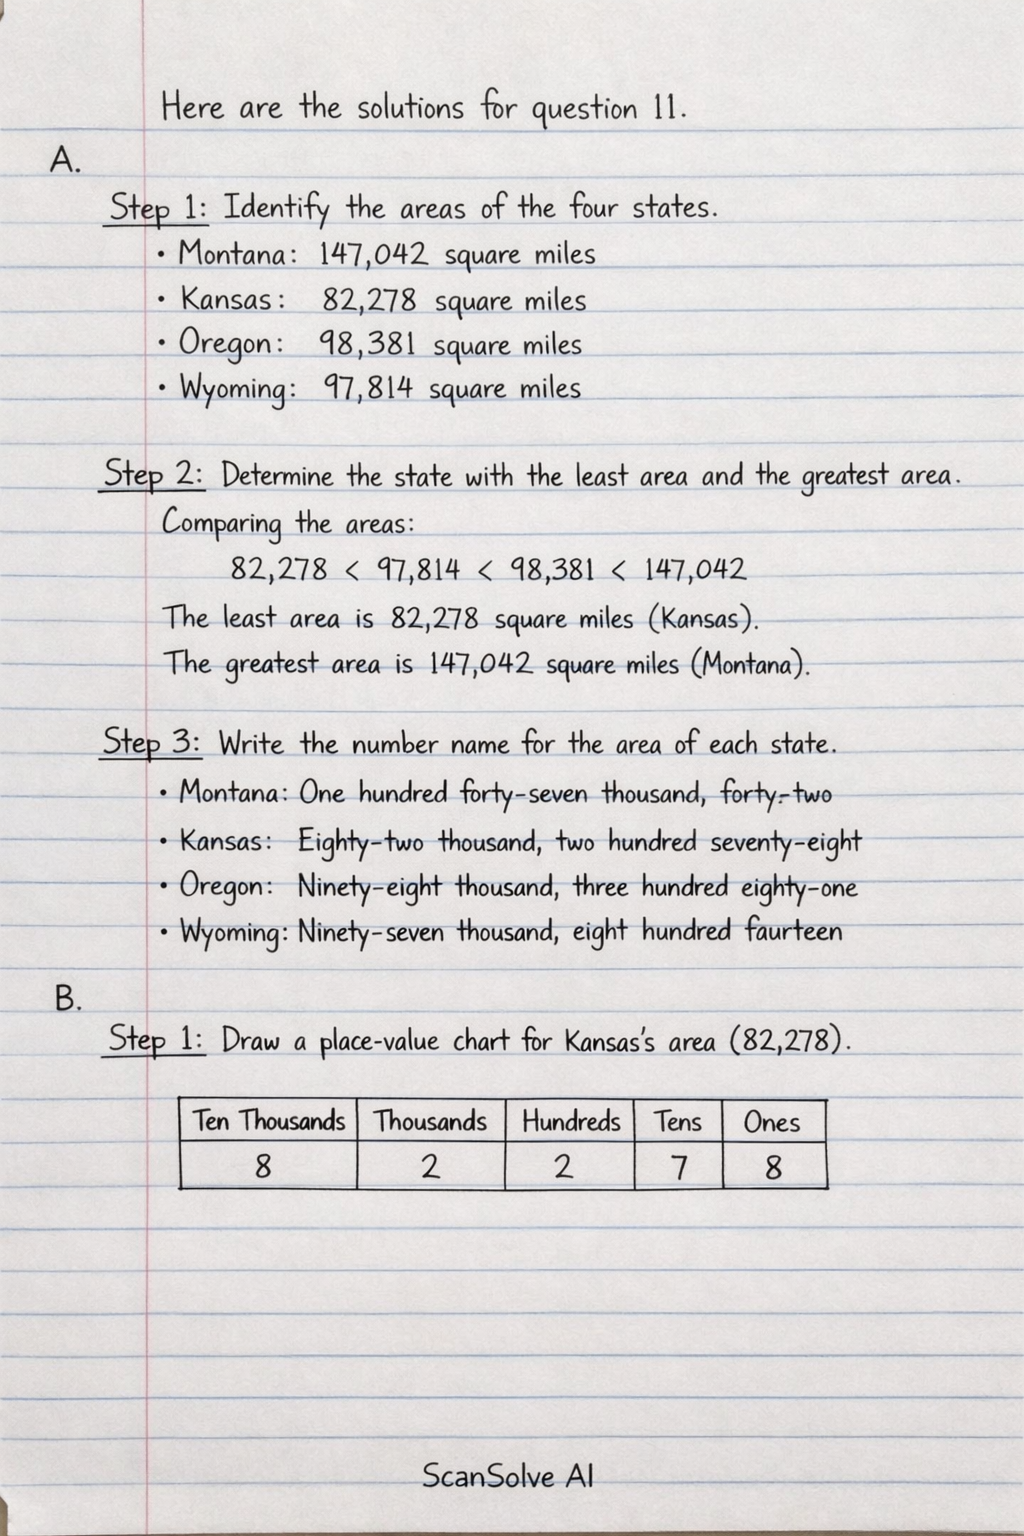 Here are the solutions for question 11.
A.
Step 1: Identify the areas of the four states.
• Montana: 147,042 square miles
• Kansas: 82,278 square miles
• Oregon: 98,381 square miles
• Wyoming: 97,814 square miles
Step 2: Determine the state with the least area and the greatest area.
Comparing the areas:
82,278 < 97,814 < 98,381 < 147,042
The least area is 82,278 square miles (Kansas).
The greatest area is 147,042 square miles (Montana).
Step 3: Write the number name for the area of each state.
• Montana: One hundred forty-seven thousand, forty-two
• Kansas: Eighty-two thousand, two hundred seventy-eight
• Oregon: Ninety-eight thousand, three hundred eighty-one
• Wyoming: Ninety-seven thousand, eight hundred faurteen
B.
Step 1: Draw a place-value chart for Kansas's area (82,278).
Ten Thousands Thousands Hundreds Tens Ones
8 2 2 7 8
ScanSolve AI